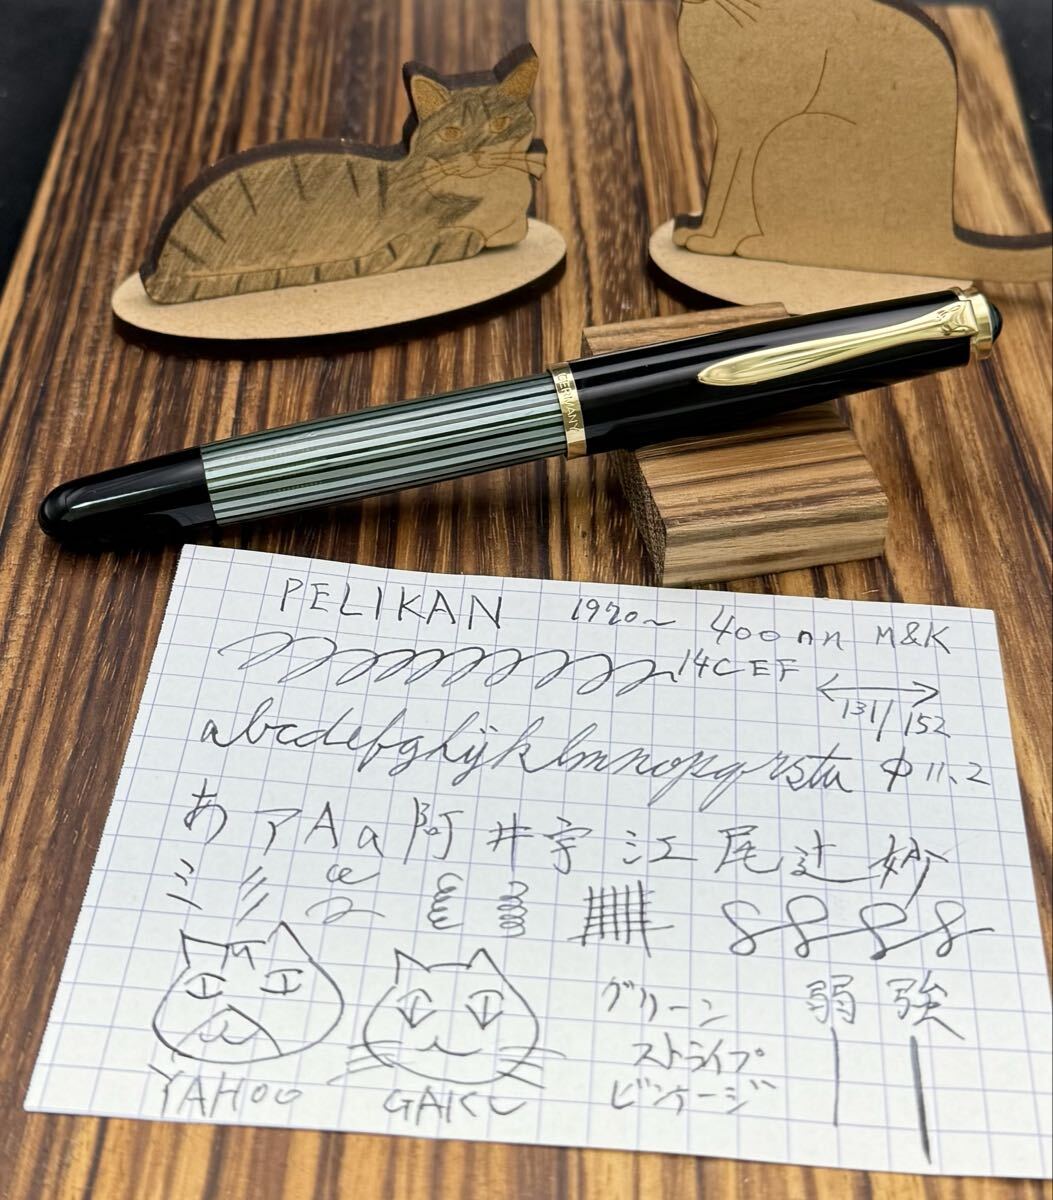 GERMANY
PELIKAN 1970~ 400nn M&K
14C EF
131/152
abcdefghijklmnopqrstu φ11.2
あ ア A a 阿 井 宇 江 尾 辻 妙
弱 強
グリーン
ストライプ
ビンテージ
YAHOO GAKU